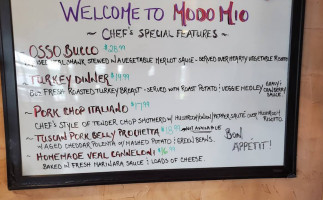 WELCOME TO MODO MIO
~ CHEF'S SPECIAL FEATURES ~
OSSO BUCCO $28.99
VEAL SHANK STEWED IN A VEGETABLE MERLOT SAUCE - SERVED OVER HEARTY VEGETABLE
TURKEY DINNER $19.99
FRESH ROASTED TURKEY BREAST - SERVED WITH ROAST POTATO & VEGGIE MEDLEY GRAVY & CRANBERRY SAUCE
~ PORK CHOP ITALIANO $17.99
CHEF'S STYLE OF TENDER, CHOP SMOTHERED W/ MUSHROOM/ONION/PEPPER SAUTE OVER MUSHROOM RISOTTO.
~ TUSCAN PORK BELLY PROCHETTA $18.99 UNAVAILABLE
W/ AGED CHEDDAR POLENTA W/ MASHED POTATO & GREEN BEANS.
BON APPETIT!
HOMEMADE VEAL CANNELONI $16.99
BAKED W/ FRESH MARINARA SAUCE & LOADS OF CHEESE.